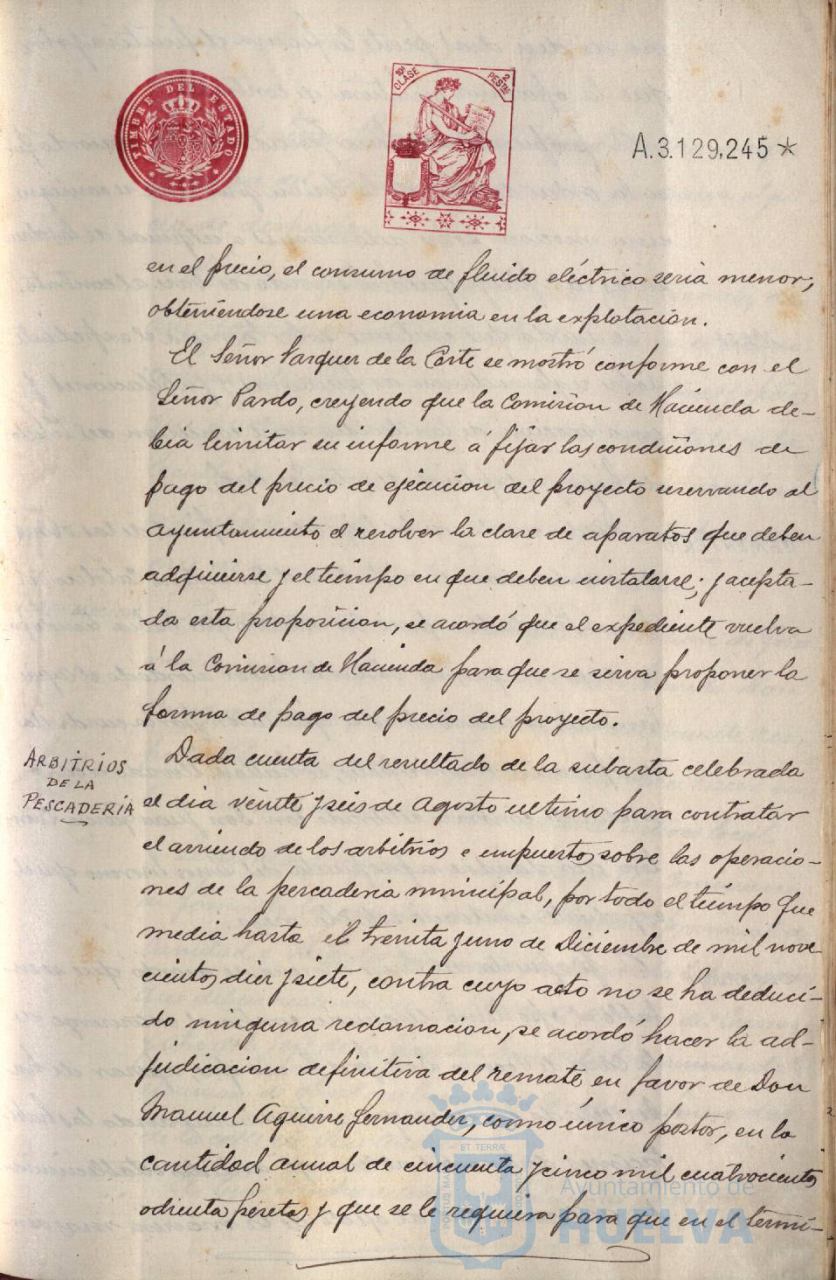 TIMBRE DEL ESTADO
10ª CLASE
2 PESTAS
A.3.129,245 *
en el precio, el consumo de fluido eléctrico seria menor,
obteniendose una economia en la explotacion.
El Señor Vazquez de la Corte se mostró conforme con el
Señor Pardo, creyendo que la Comision de Hacienda de-
bia limitar su informe á fijar las condiciones de
pago del precio de ejecucion del proyecto reservando al
ayuntamiento el resolver la clase de aparatos que deben
adquirirse y el tiempo en que deben instalarse; y acepta-
da esta proposicion, se acordó que el expediente vuelva
á la Comision de Hacienda para que se sirva proponer la
forma de pago del precio del proyecto.
ARBITRIOS
DE LA
PESCADERIA
Dada cuenta del resultado de la subasta celebrada
el dia veinte y seis de Agosto ultimo para contratar
el arriendo de los arbitrios e impuestos sobre las operacio-
nes de la pescaderia municipal, por todo el tiempo que
media hasta el treinta y uno de Diciembre de mil nove-
cientos diez y siete, contra cuyo acto no se ha deduci-
do ninguna reclamacion, se acordó hacer la ad-
judicacion definitiva del remate en favor de Don
Manuel Aguirre Fernandez, como único postor, en la
cantidad anual de cincuenta y cinco mil cuatrocientos
ochenta pesetas y que se le requiera para que en el termi-
Ayuntamiento de
HUELVA